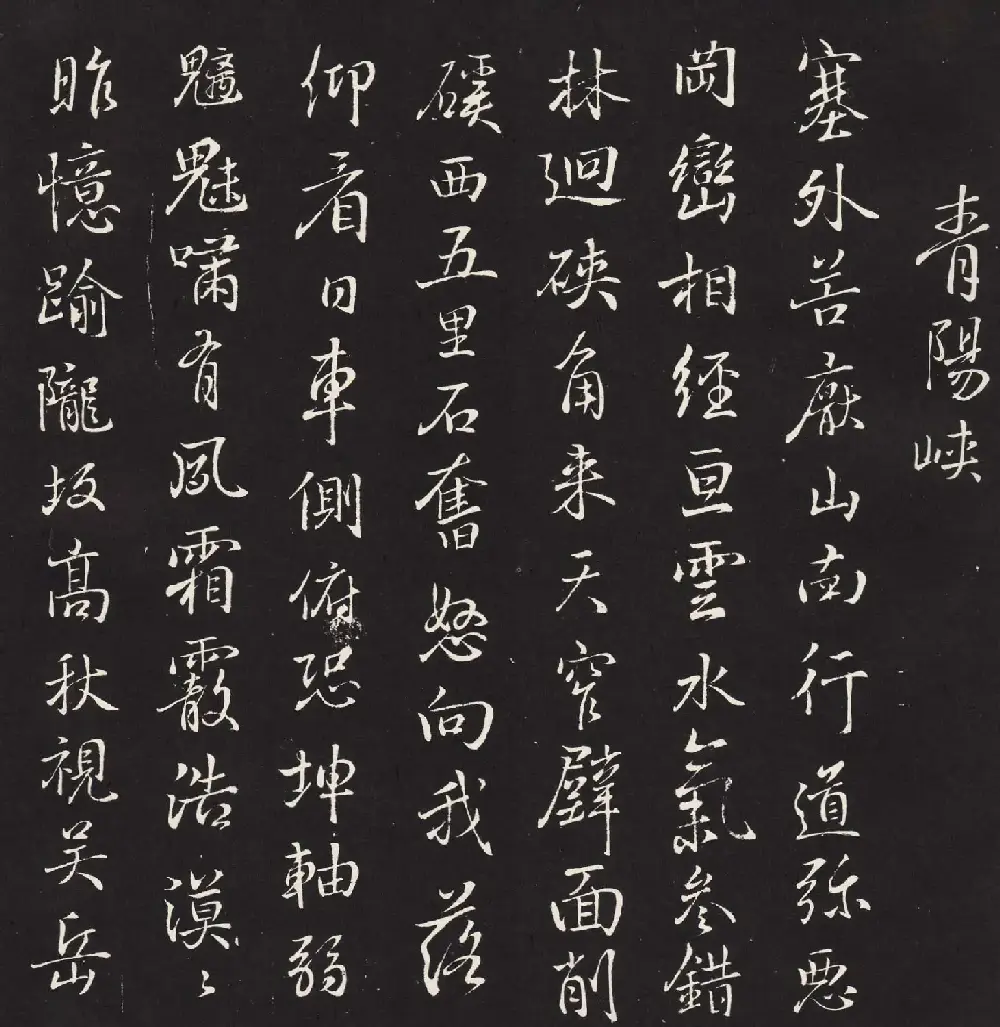 青陽峽
塞外苦厭山南行道弥惡
岡巒相經亘雲水氣參錯
林迴硤角来天窄壁面削
磎西五里石奮怒向我落
仰看日車側俯恐坤軸弱
魑魅嘯有風霜霰浩漠〻
昨憶踰隴坂高秋視吴岳